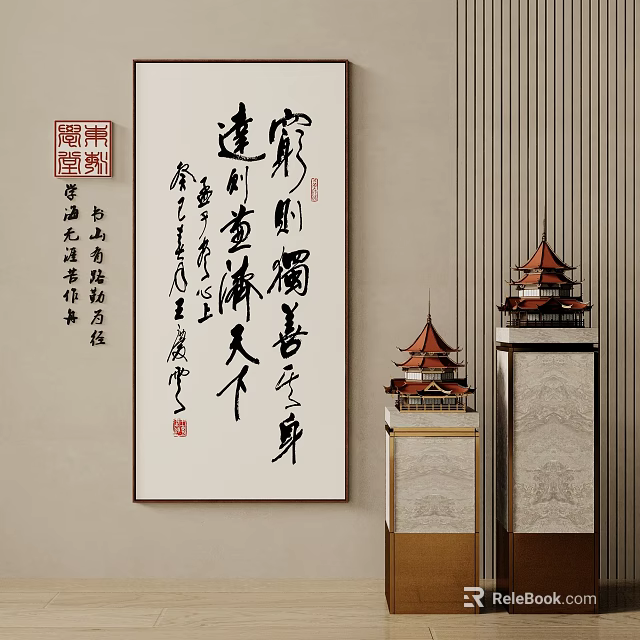 書山有路勤为径
学海无涯苦作舟
窮則獨善其身
達則兼濟天下
孟子尽心上
癸巳春月王慶雲
ReleBook.com